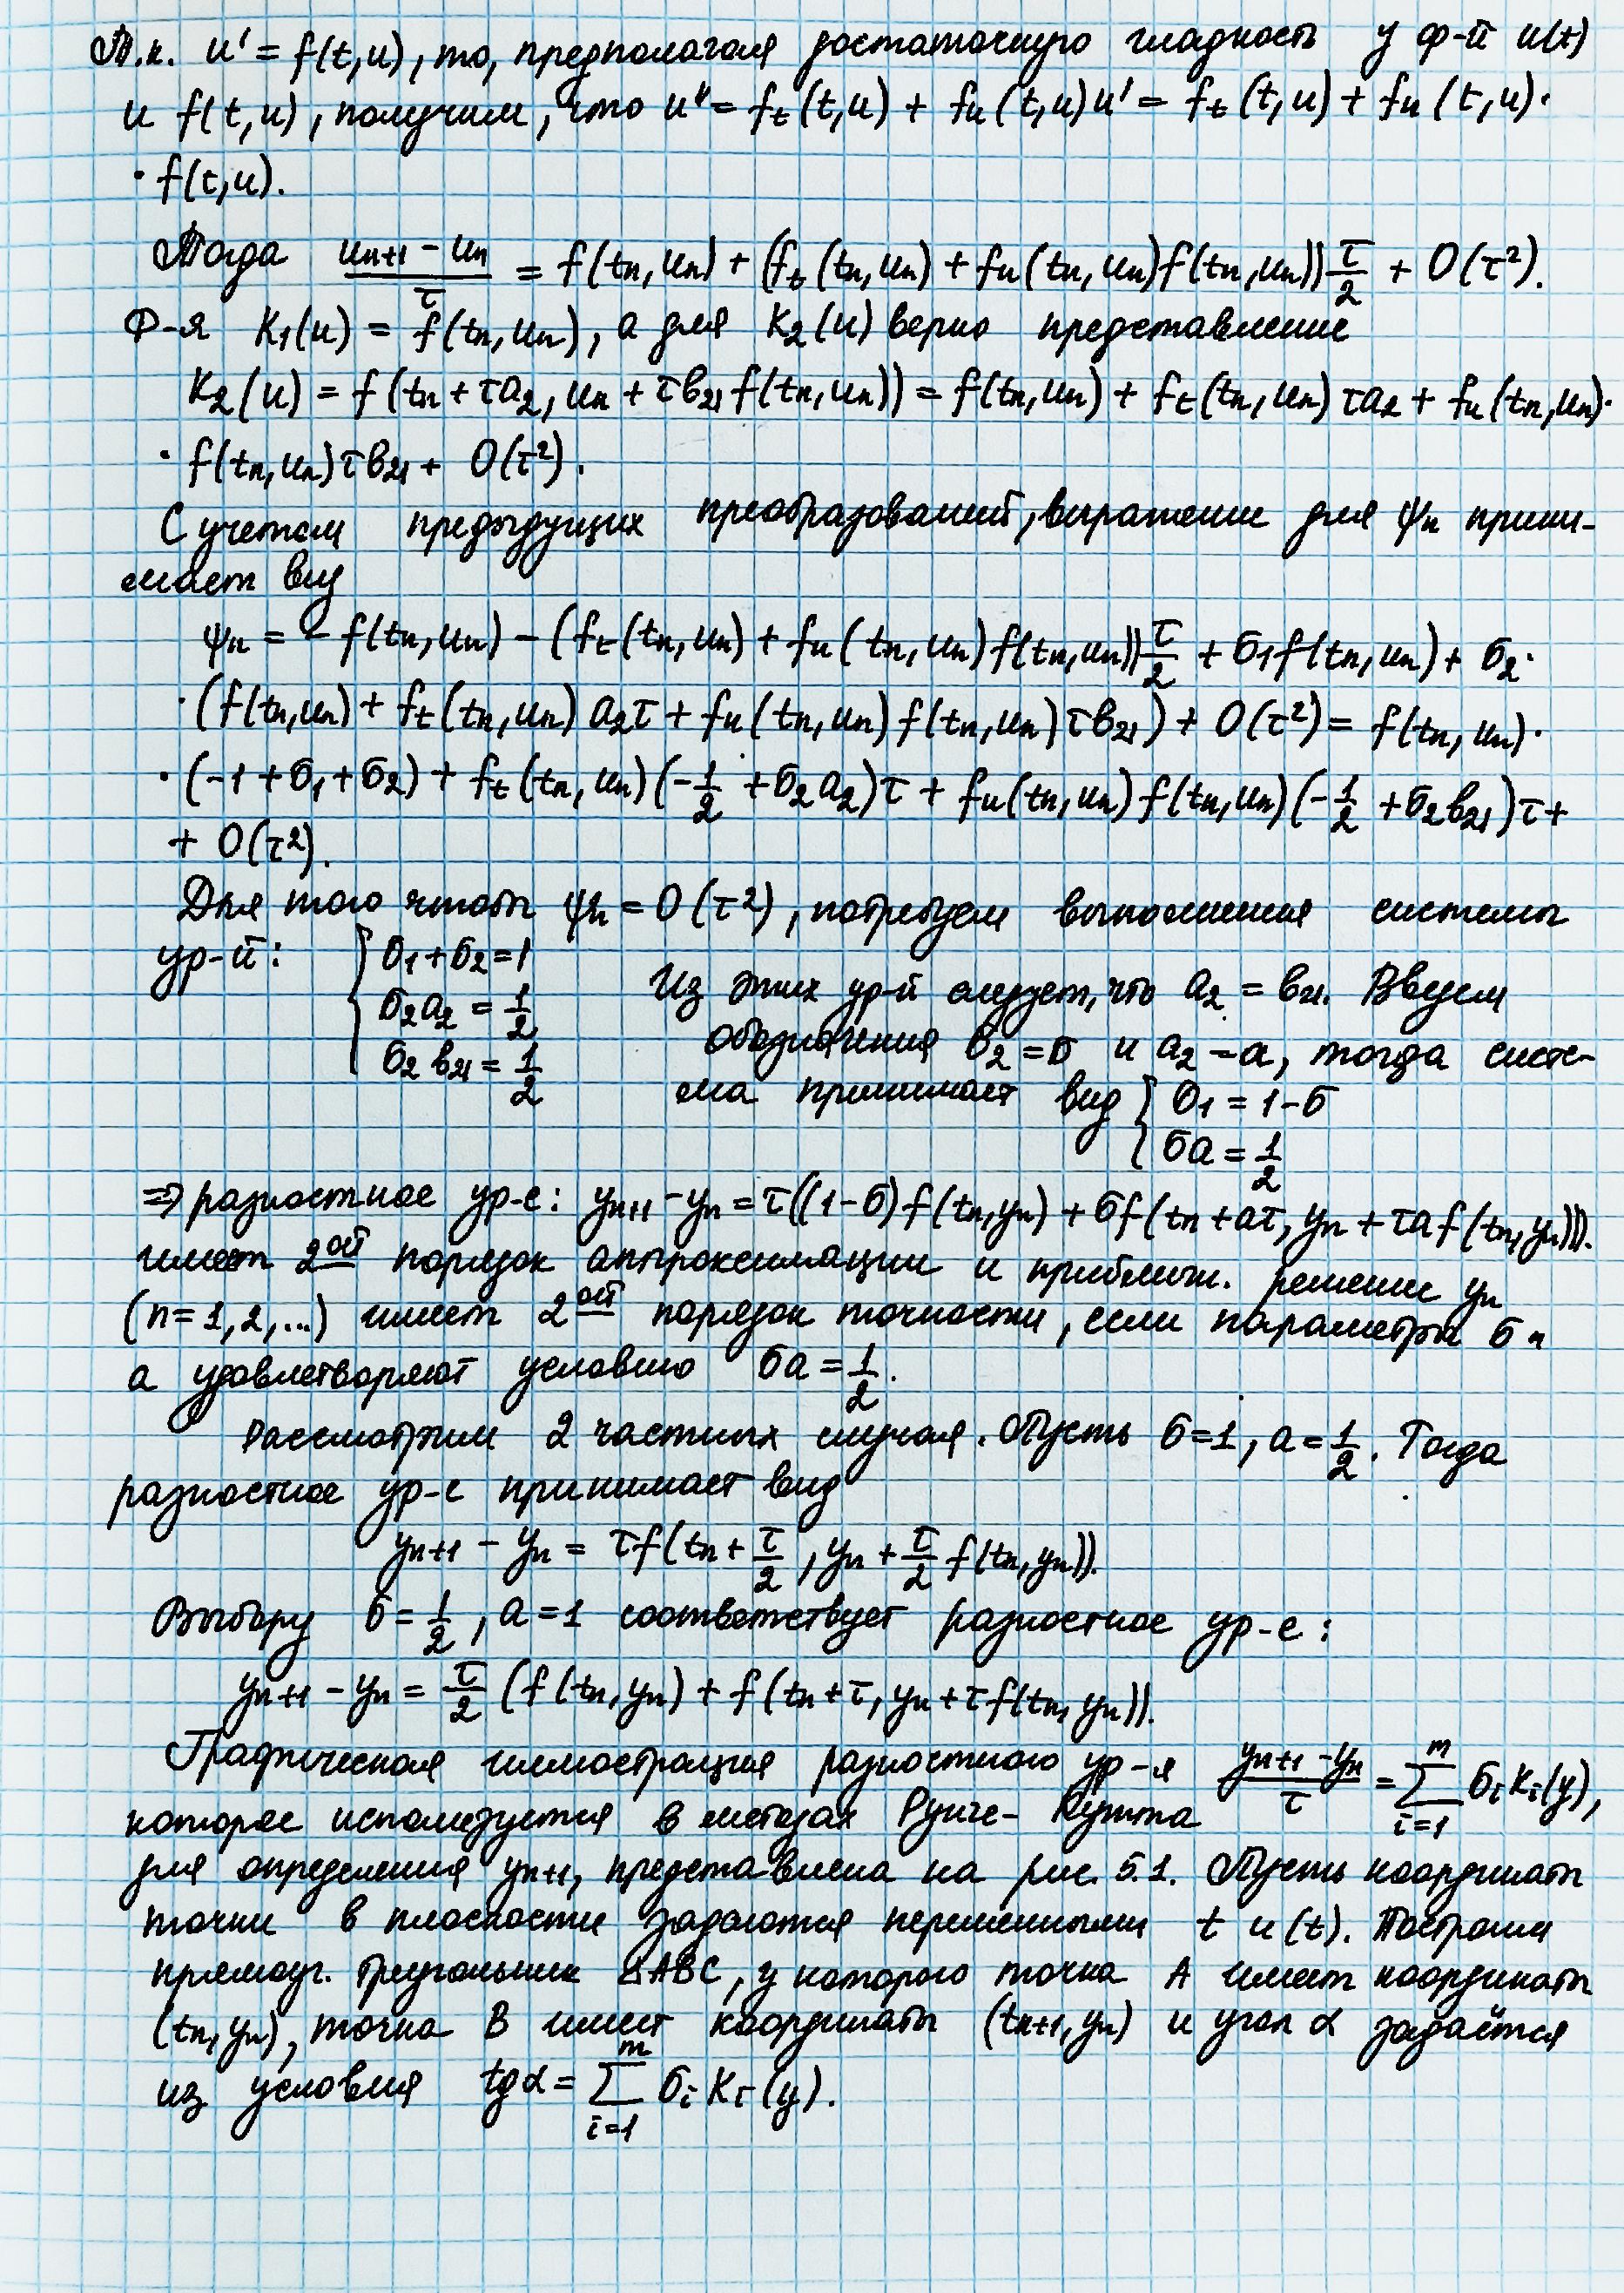 Т.к. u' = f(t,u), то, предполагая достаточную гладкость у ф-й u(t)
и f(t,u), получим, что u'' = f_t(t,u) + f_u(t,u)u' = f_t(t,u) + f_u(t,u)·
· f(t,u).
Тогда (u_{n+1} - u_n)/τ = f(t_n,u_n) + (f_t(t_n,u_n) + f_u(t_n,u_n)f(t_n,u_n)) τ/2 + O(τ²).
Ф-я K_1(u) = f(t_n,u_n), а для K_2(u) верно представление
K_2(u) = f(t_n + τa_2, u_n + τb_{21}f(t_n,u_n)) = f(t_n,u_n) + f_t(t_n,u_n)τa_2 + f_u(t_n,u_n)·
· f(t_n,u_n)τb_{21} + O(τ²).
С учетом предыдущих преобразований, выражение для ψ_n прини-
мает вид
ψ_n = - f(t_n,u_n) - (f_t(t_n,u_n) + f_u(t_n,u_n)f(t_n,u_n)) τ/2 + σ_1f(t_n,u_n) + σ_2·
· (f(t_n,u_n) + f_t(t_n,u_n)a_2τ + f_u(t_n,u_n)f(t_n,u_n)τb_{21}) + O(τ²) = f(t_n,u_n)·
· (-1 + σ_1 + σ_2) + f_t(t_n,u_n)(-1/2 + σ_2a_2)τ + f_u(t_n,u_n)f(t_n,u_n)(-1/2 + σ_2b_{21})τ +
+ O(τ²).
Для того чтобы ψ_n = O(τ²), потребуем выполнения системы
ур-й: { σ_1 + σ_2 = 1
σ_2a_2 = 1/2
σ_2b_{21} = 1/2
Из этих ур-й следует, что a_2 = b_{21}. Введем
обозначения σ_2 = σ и a_2 = a, тогда систе-
ма принимает вид { σ_1 = 1-σ
σa = 1/2
⇒ разностное ур-е: y_{n+1} - y_n = τ((1-σ)f(t_n,y_n) + σf(t_n + aτ, y_n + τaf(t_n,y_n))).
имеет 2ой порядок аппроксимации и приближ. решение y_n
(n=1,2,...) имеет 2ой порядок точности, если параметры σ и
a удовлетворяют условию σa = 1/2.
Рассмотрим 2 частных случая. Пусть σ=1, a=1/2. Тогда
разностное ур-е принимает вид
y_{n+1} - y_n = τf(t_n + τ/2, y_n + τ/2 f(t_n,y_n)).
Выбору σ=1/2, a=1 соответствует разностное ур-е:
y_{n+1} - y_n = τ/2 (f(t_n,y_n) + f(t_n+τ, y_n+τf(t_n,y_n)).
Графическая иллюстрация разностного ур-я (y_{n+1} - y_n)/τ = Σ_{i=1}^{m} σ_iK_i(y),
которое используется в методах Рунге-Кутта
для определения y_{n+1}, представлена на рис. 5.1. Пусть координаты
точки в плоскости задаются переменными t u(t). Построим
прямоуг. треугольник △ABC, у которого точка A имеет координаты
(t_n,y_n), точка B имеет координаты (t_{n+1},y_n) и угол α задаётся
из условия tgα = Σ_{i=1}^{m} σ_iK_i(y).